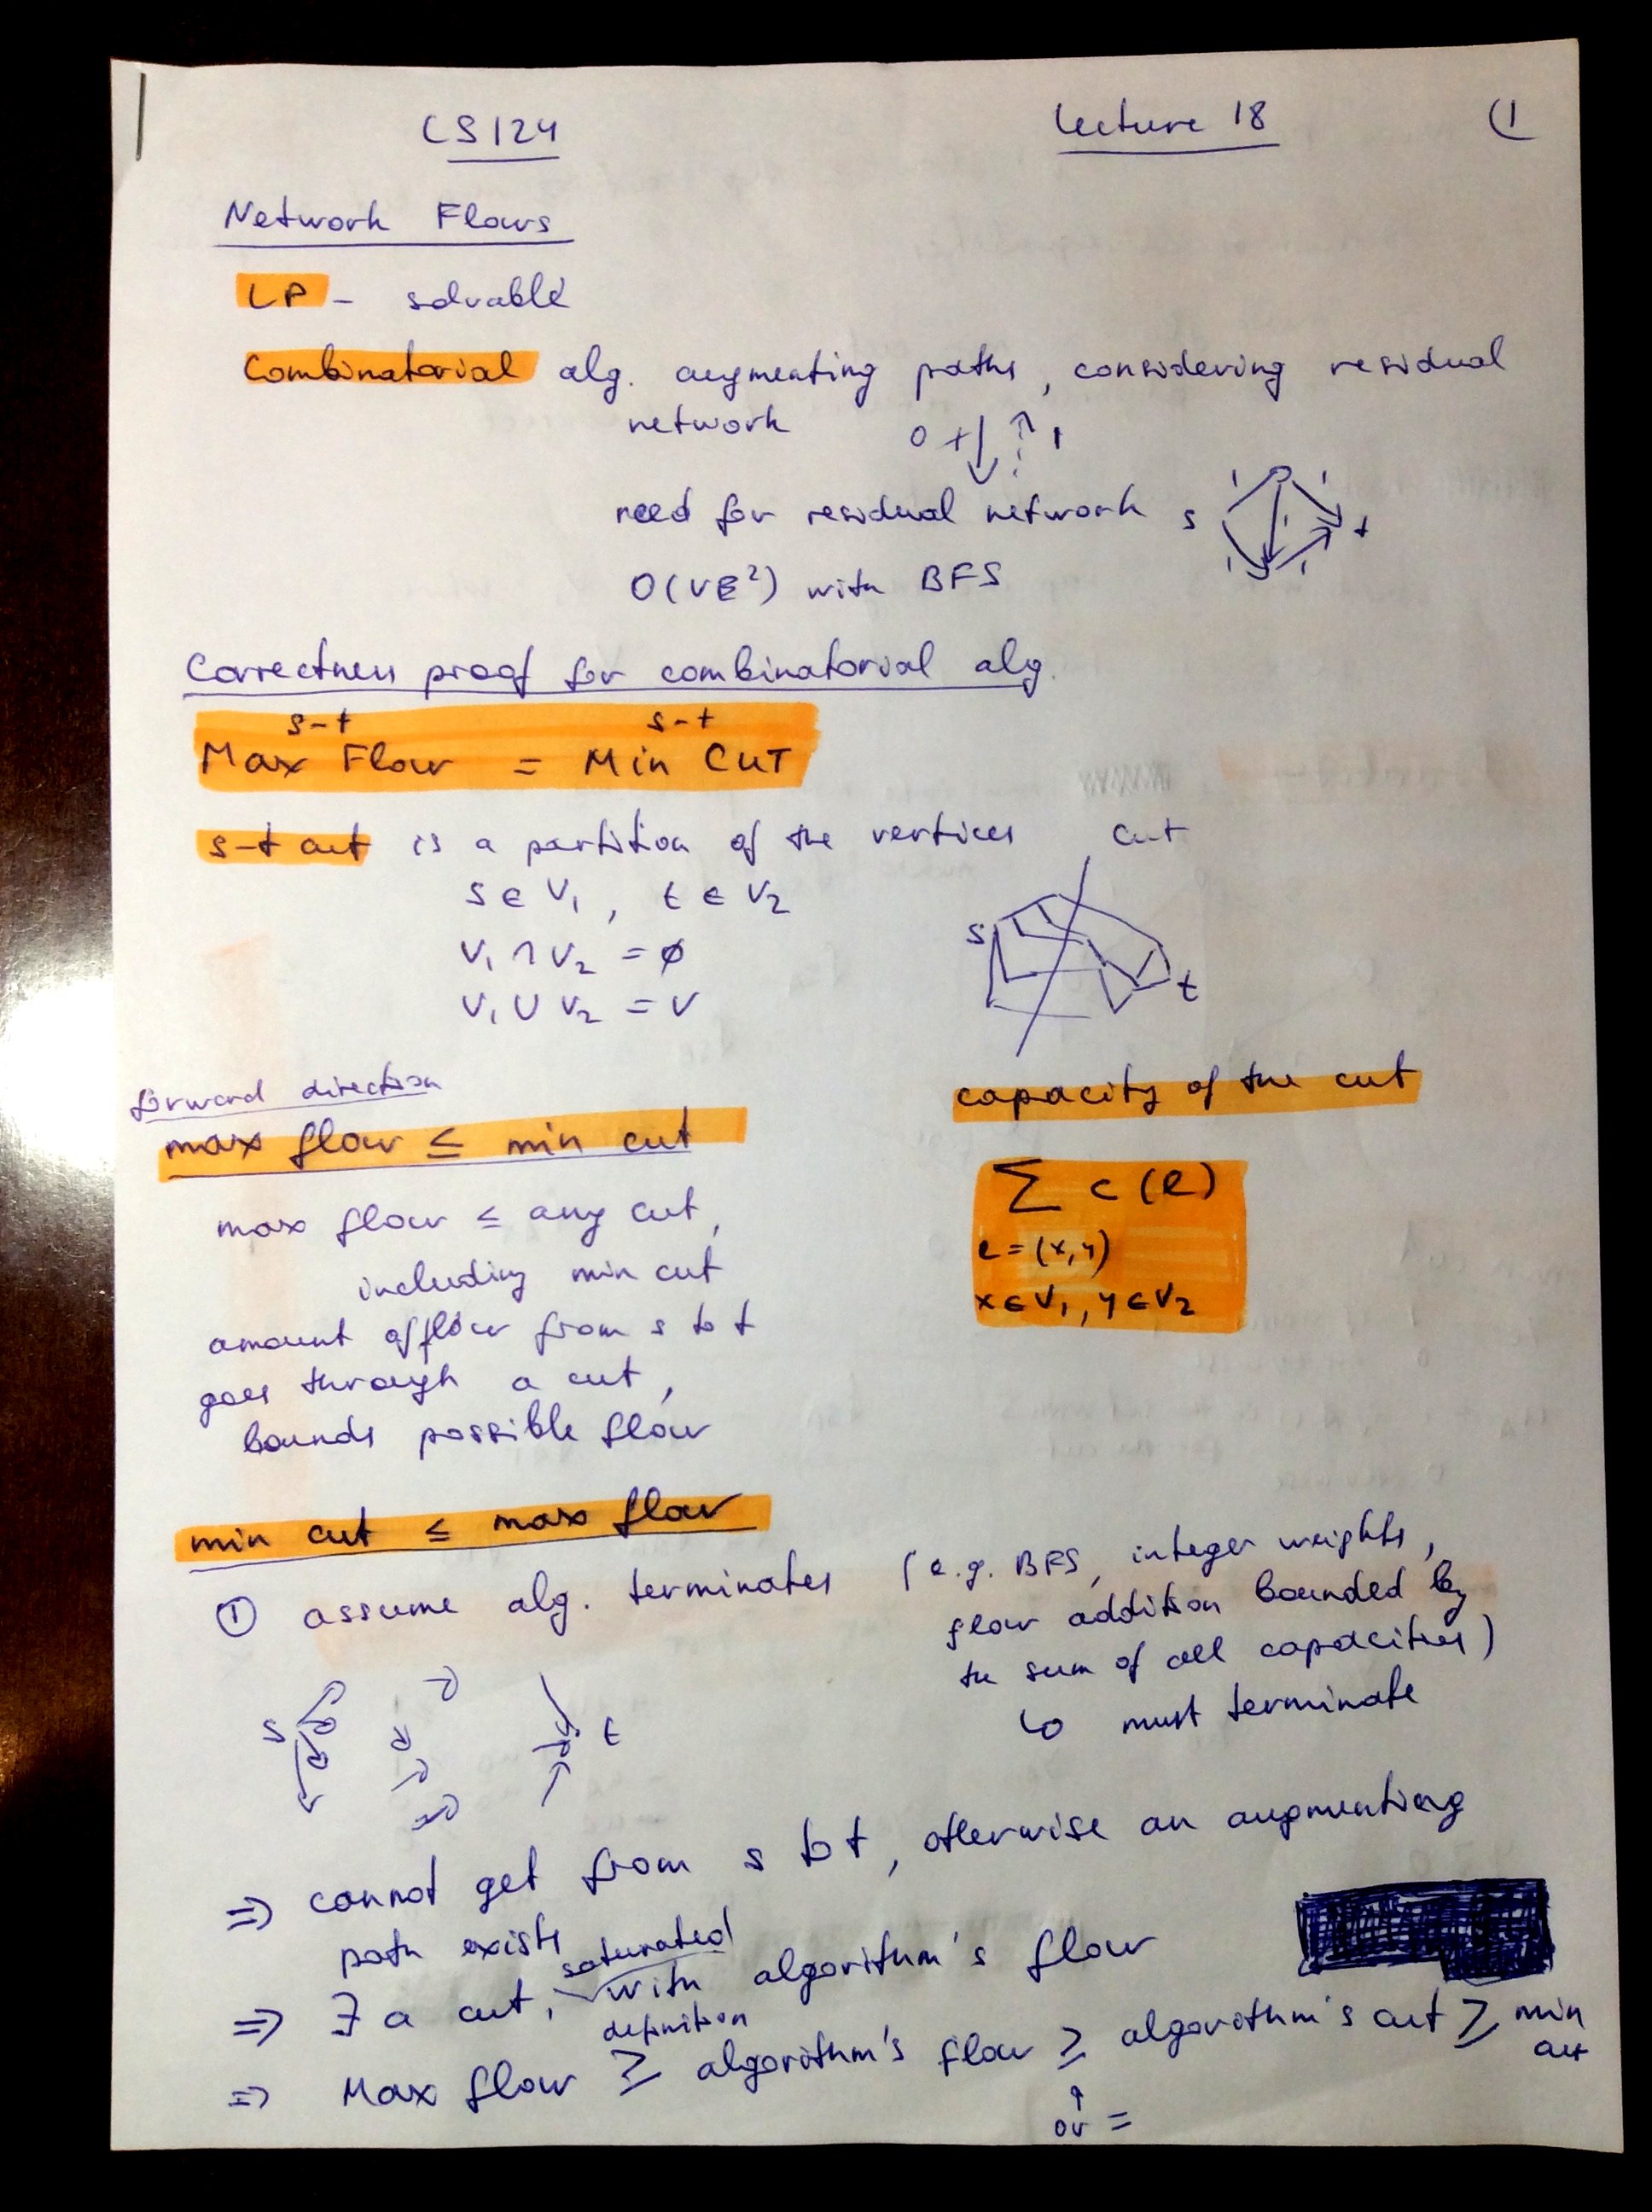 CS124 Lecture 18 (1
Network Flows
LP - solvable
Combinatorial alg. augmenting paths, considering residual
network 0 1
need for residual network s 1 1 1 1 1 t
O(VE²) with BFS
Correctness proof for combinatorial alg.
s-t s-t
Max Flow = Min CUT
s-t cut is a partition of the vertices cut
s ∈ V₁, t ∈ V₂
V₁ ∩ V₂ = ∅
V₁ ∪ V₂ = V
s t
forward direction
max flow ≤ min cut
capacity of the cut
∑ c(e)
e=(x,y)
x∈V₁, y∈V₂
max flow ≤ any cut,
including min cut
amount of flow from s to t
goes through a cut,
bounds possible flow
min cut ≤ max flow
① assume alg. terminates (e.g. BFS, integer weights,
flow addition bounded by
the sum of all capacities)
↳ must terminate
s t
⇒ cannot get from s to t, otherwise an augmenting
path exists
saturated
⇒ ∃ a cut, with algorithm's flow
definition
⇒ Max flow ≥ algorithm's flow ≥ algorithm's cut ≥ min
cut
↑
or =